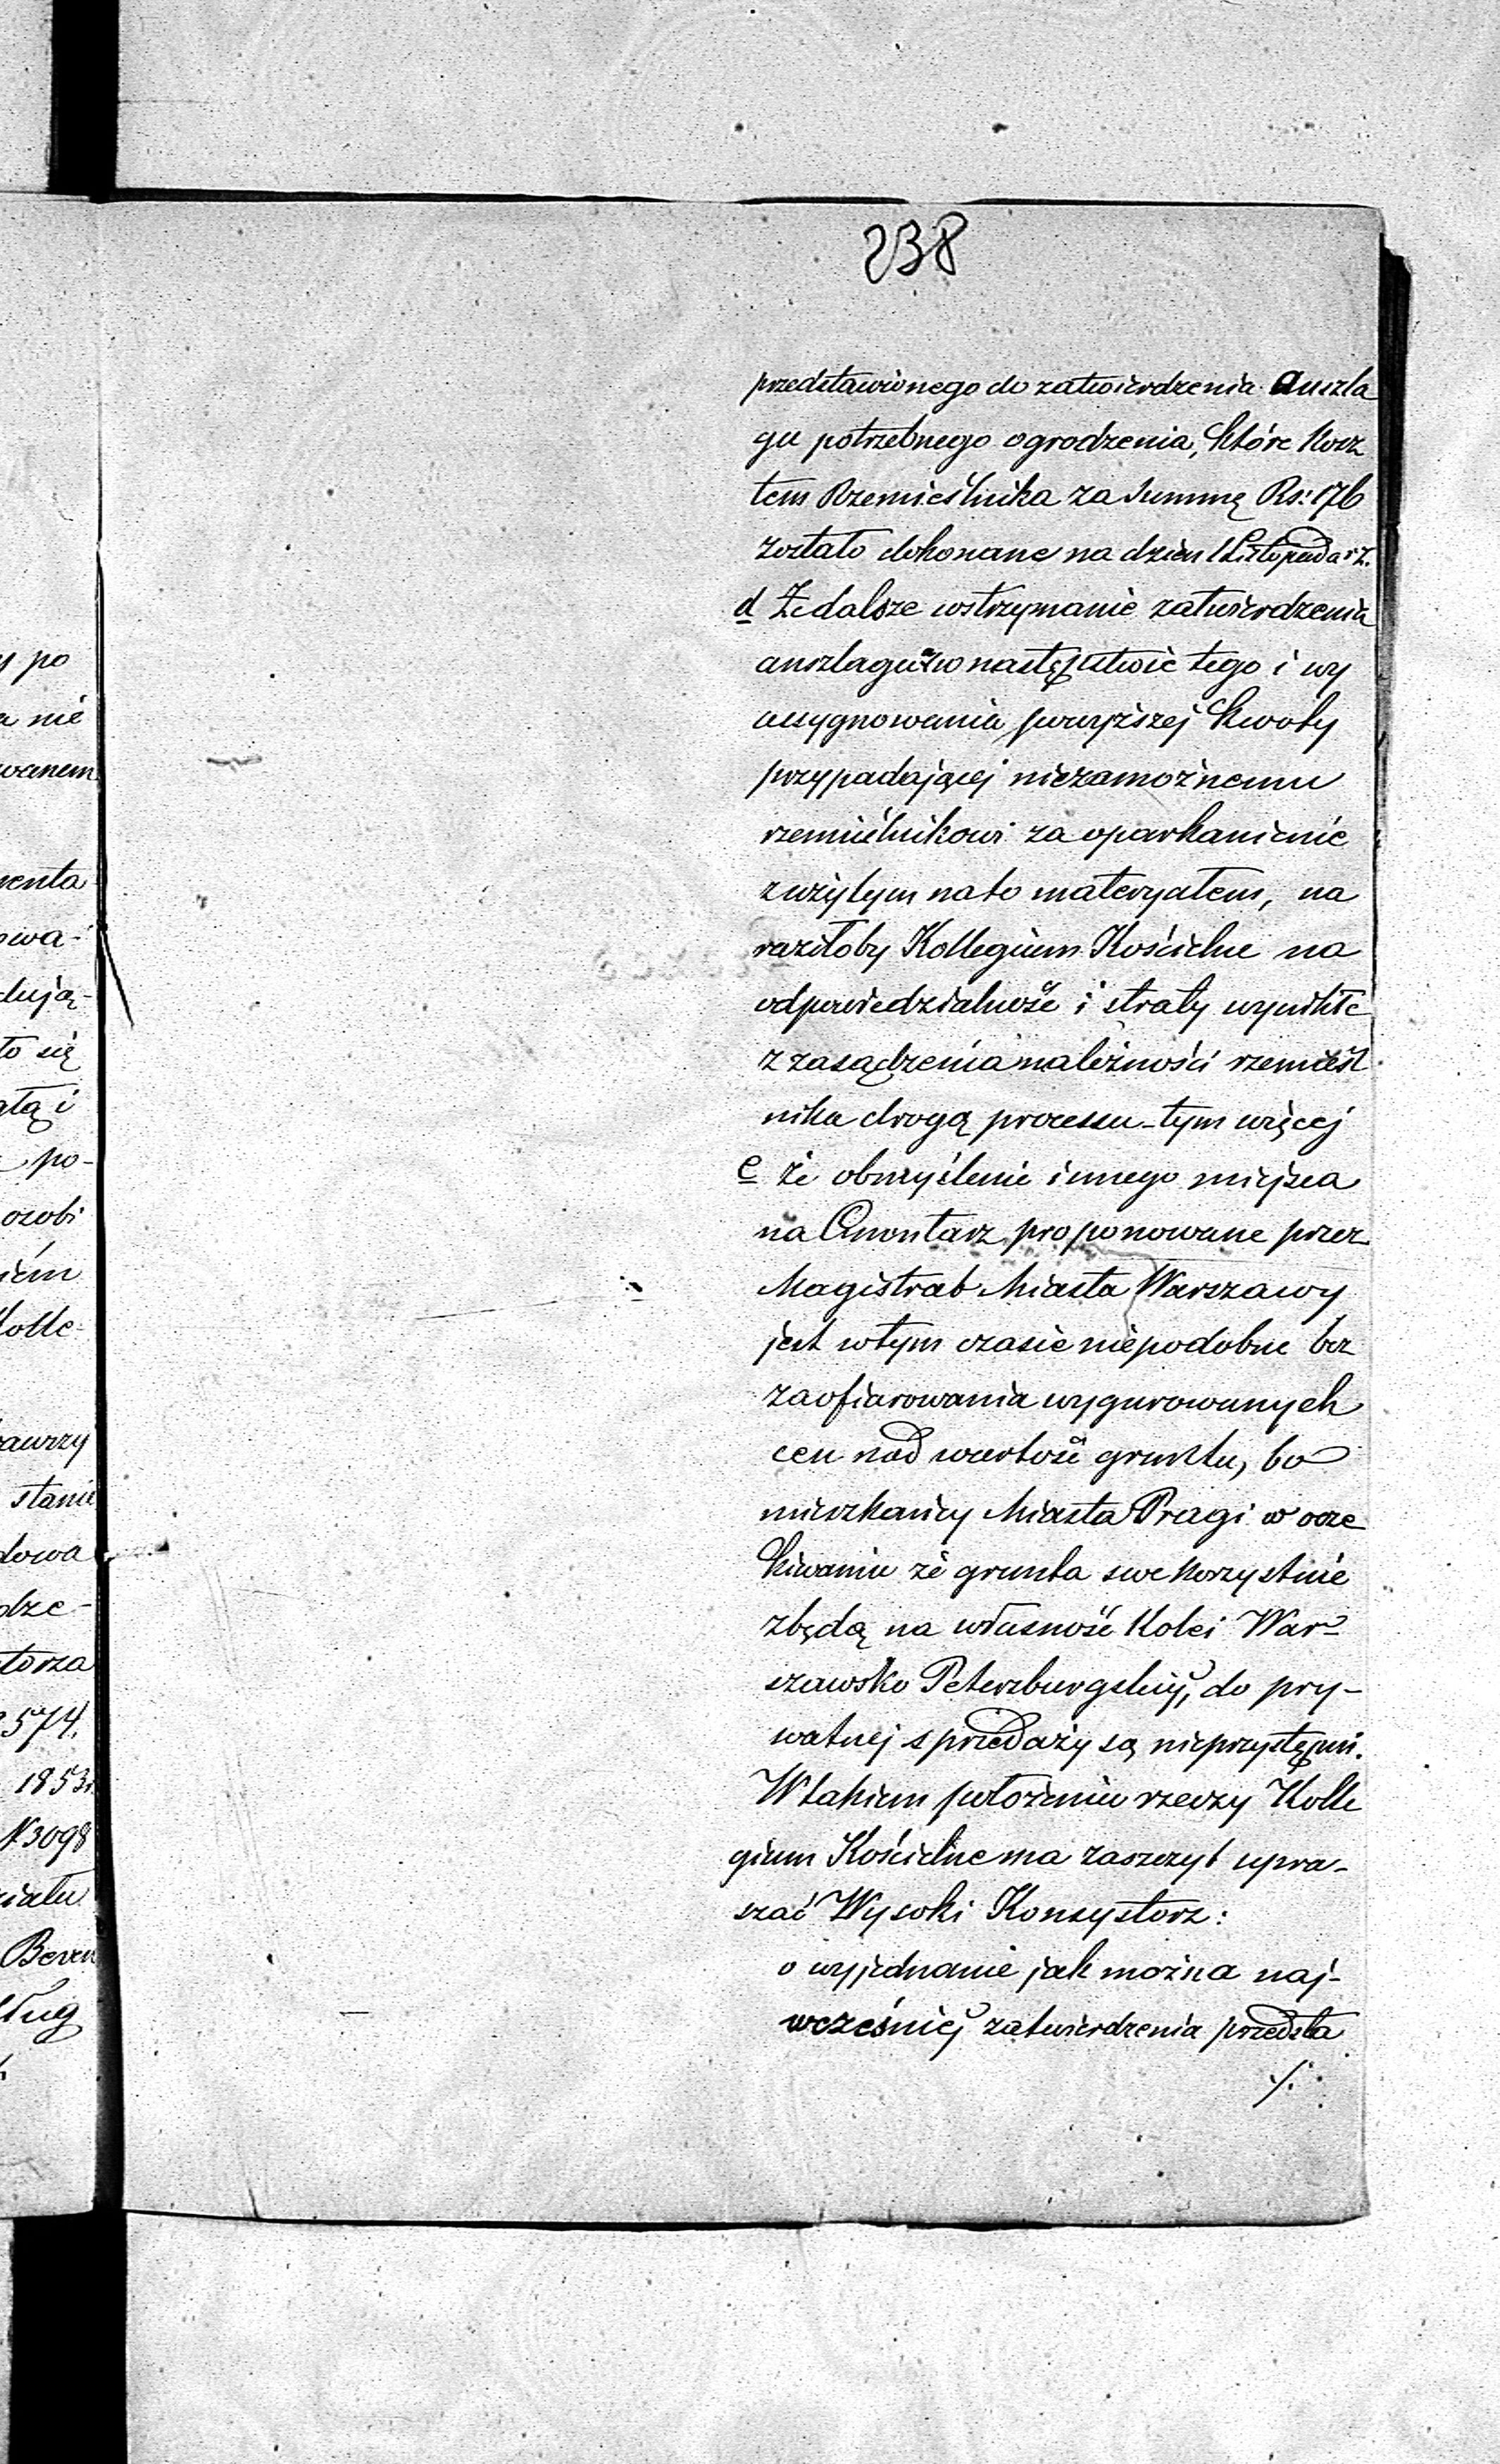 238
przedstawionego do zatwierdzenia anszla
gu potrzebnego ogrodzenia, które kosz
tem Rzemieślnika za summę Rs: 176
zostało dokonane na dzień 1 Listopada r. z.
d Że dalsze wstrzymanie zatwierdzenia
anszlagu a w następstwie tego i wy
assygnowania powyższej kwoty
przypadającej niezamożnemu
rzemieślnikowi za oparkanienie
z użytym na to materyałem, na
raziłoby Kollegium Kościelne na
odpowiedzialność i straty wynikłe
z zasądzenia należności rzemieśl
nika drogą processu - tym więcej
e że obmyślenie innego miejsca
na Cmentarz proponowane przez
Magistrat Miasta Warszawy
jest w tym czasie niepodobne bez
zaofiarowania wygurowanych
cen nad wartość gruntu, bo
mieszkańcy Miasta Pragi w ocze
kiwaniu że grunta swe korzystnie
zbędą na własność Kolei War-
szawsko Petersburgskiej, do pry-
watnej sprzedaży są nieprzystępni.
W takiem położeniu rzeczy Kolle
gium Kościelne ma zaszczyt upra-
szać Wysoki Konsystorz:
o wyjednanie jak można naj-
wcześniej zatwierdzenia przedsta
./.
y po
a nie
wanem
menta
owa-
dują-
to się
atą i
po-
osobi
iém
Kolle-
stanie
dowa
dze-
torza
2574.
1853r.
N 3098
ziału
Beren
ług